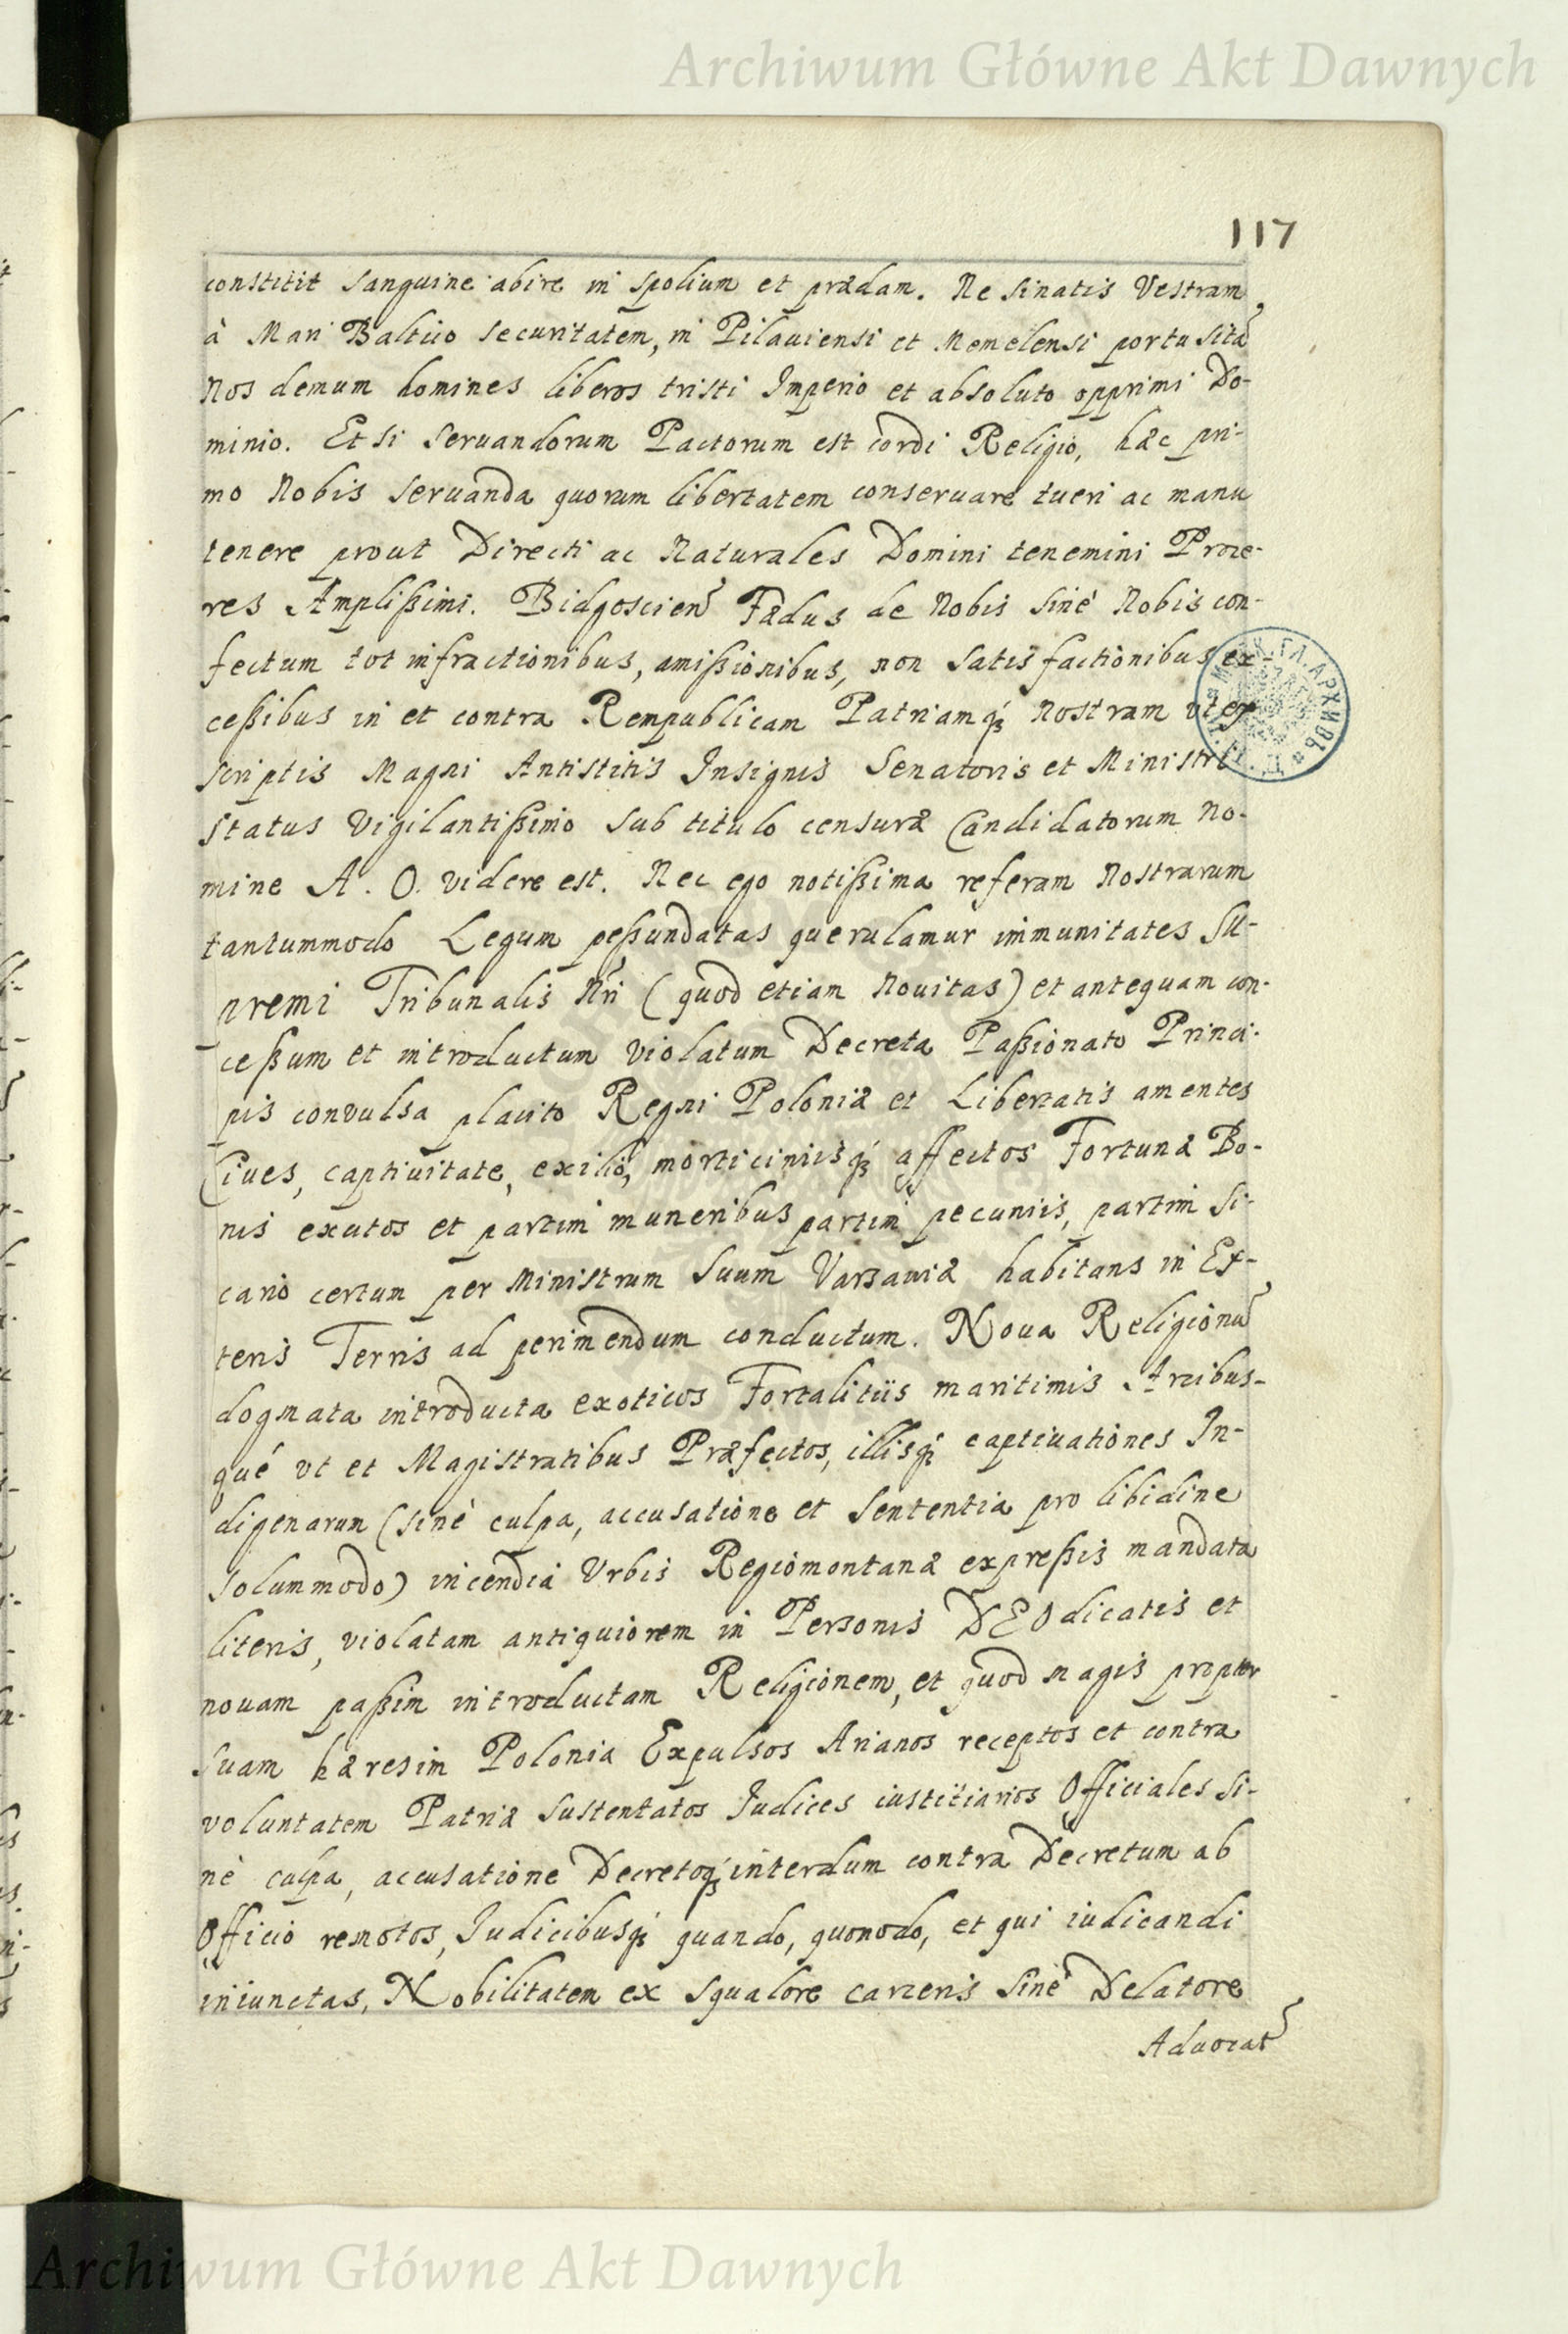 Archiwum Główne Akt Dawnych
117
constitit sanguine abire in spolium et prædam. Ne sinatis Vestram
à Mari Baltico securitatem, in Pilauiensi et Memelensi portu sitã
Nos demum homines liberos tristi Imperio et absoluto opprimi Do-
minio. Et si seruandorum Pactorum est cordi Religio, hæc pri-
mo Nobis seruanda quorum libertatem conseruare tueri ac manu
tenere prout Directi ac Naturales Domini tenemini Proce-
res Amplißimi. Bidgoscien̄ Fædus de Nobis sinè Nobis con-
fectum tot infractionibus, amißionibus, non satisfactionibus ex-
ceßibus in et contra Rempublicam Patriamq́ʒ nostram vt ex
scriptis Magni Antistitis Insignis Senatoris et Ministri
status Vigilantißimo sub titulo censuræ Candidatorum no-
mine A. O. videre est. Nec ego notißima referam Nostrarum
tantummodo Legum peßundatas querulamur immunitates Su-
premi Tribunalis Nr̃i (quod etiam Nouitas) et antequam con-
ceßum et introductum violatum Decreta Paßionato Princi-
pis convulsa placito Regni Poloniæ et Libertatis amentes
Ciues, captiuitate, exilio, morticinijsq́ʒ affectos Fortunæ Bo-
nis exutos et partim muneribus partim pecuniis, partim si-
cario certum per Ministrum suum Varsauiæ habitans in Ex-
teris Terris ad perimendum conductum. Noua Religionũ
dogmata introducta exoticos Fortalitiis maritimis Arcibus-
qué vt et Magistratibus Præfectos, illisq́ʒ captiuationes In-
digenarum (sinè culpa, accusatione et sententia pro libidine
solummodo) incendia Vrbis Regiomontanæ expreßis mandata
literis, violatam antiquiorem in Personis DEO dicatis et
nouam paßim introductam Religionem, et quod magis propter
suam hæresim Polonia Expulsos Arianos receptos et contra
voluntatem Patriæ sustentatos Iudices iustitiarios Officiales si-
nè culpa, accusatione Decretoq́ʒ interdum contra Decretum ab
Officio remotos, Iudicibusq́ʒ quando, quomodo, et qui iudicandi
iniunctas, Nobilitatem ex squalore carceris sinè Delatore
Aduocat̃
Archiwum Główne Akt Dawnych